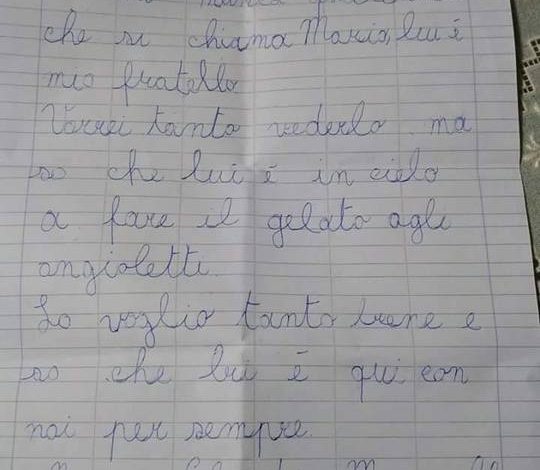 manca
che si chiama Mario, lui è
mio fratello
Vorrei tanto vederlo ma
so che lui è in cielo
a fare il gelato agli
angioletti.
Lo voglio tanto bene e
so che lui è qui con
noi per sempre.